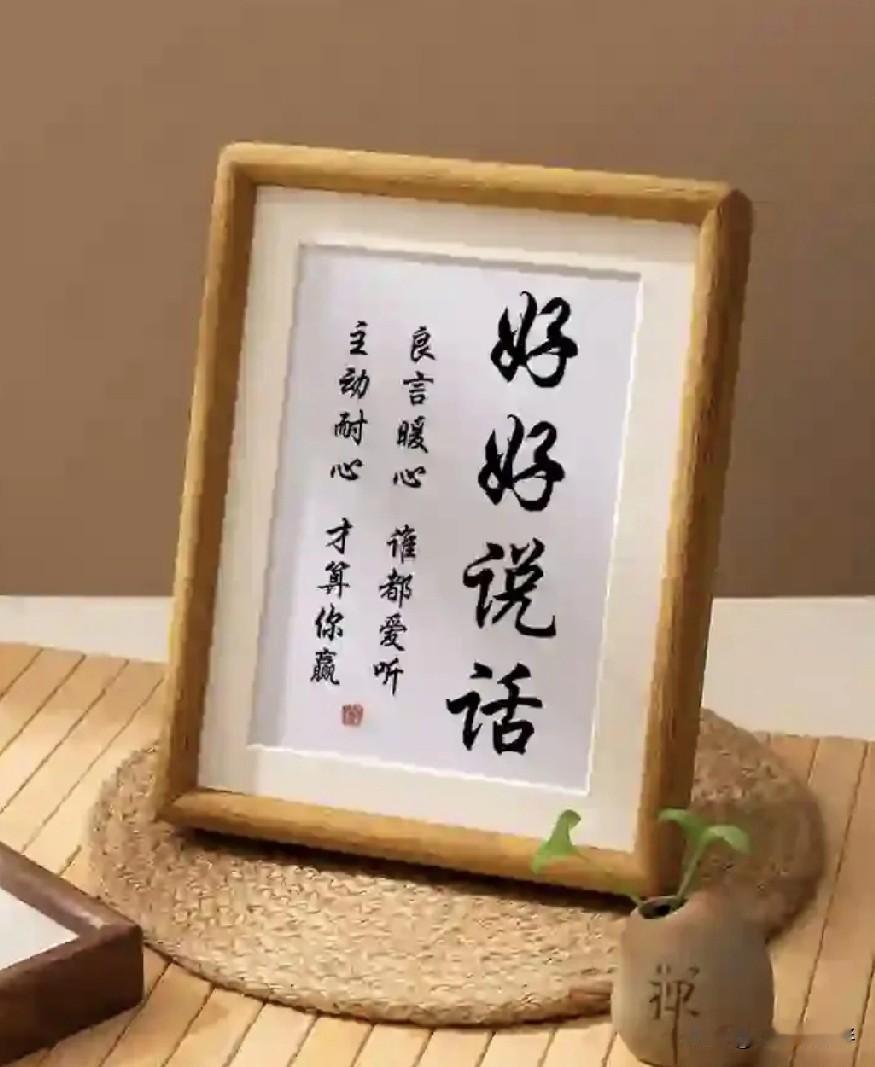 好好说话
良言暖心 谁都爱听
主动耐心 才算你赢
禅